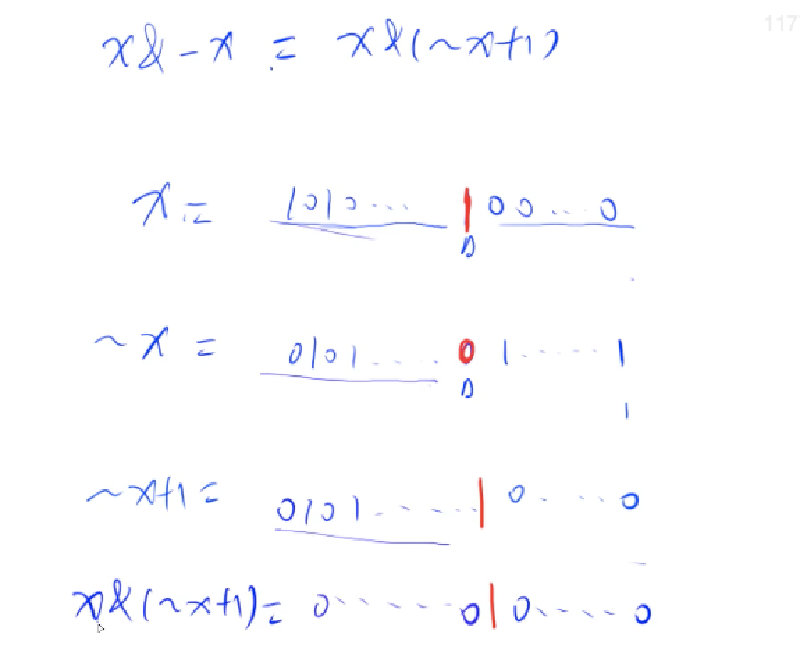 117
x&-x = x&(~x+1)
x= 1010... 1 00...0
~x = 0101.... 0 1.....1
1
~x+1= 0101...... 1 0....0
x&(~x+1)= 0......0 1 0.....0